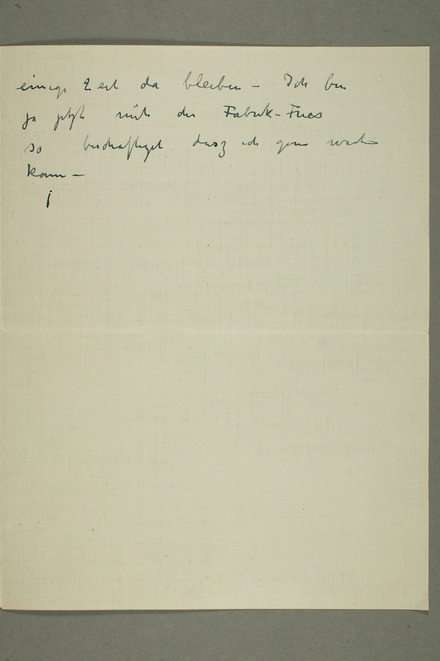 einige Zeit da bleiben – Ich bin
ja jetzt mit der Fabrik-Fries
so beschäftigt dasz ich gern warten
kann –